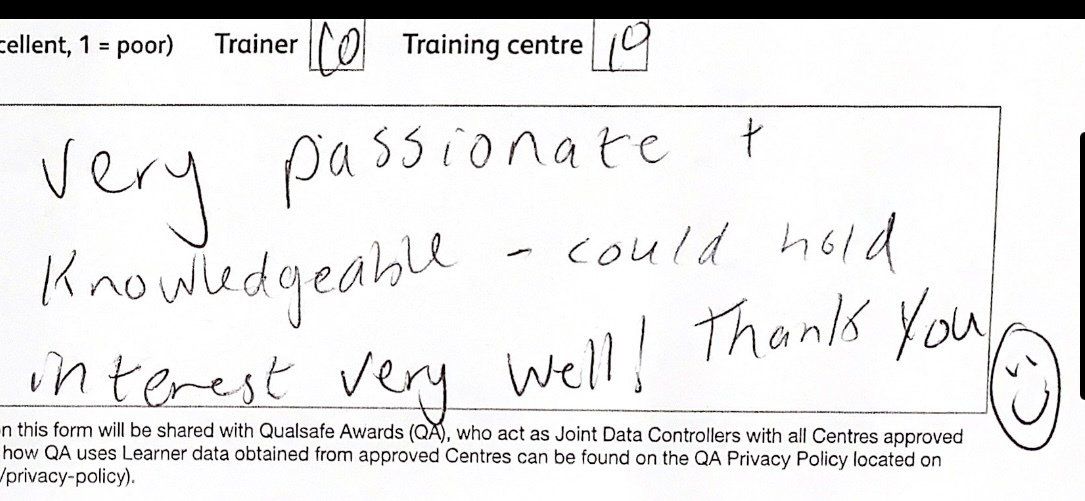 cellent, 1 = poor) Trainer 10 Training centre 10
Very passionate +
Knowledgeable - could hold
interest very well! Thank You
n this form will be shared with Qualsafe Awards (QA), who act as Joint Data Controllers with all Centres approved
how QA uses Learner data obtained from approved Centres can be found on the QA Privacy Policy located on
/privacy-policy).